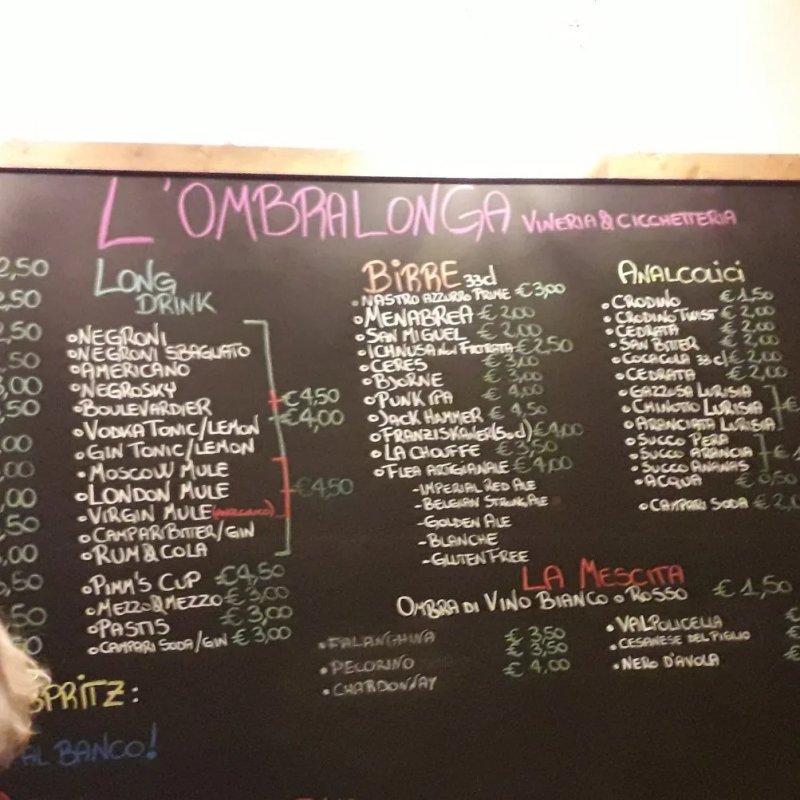 L'OMBRALONGA VINERIA & CICCHETTERIA
2,50
2,50
2,50
LONG
DRINK
• NEGRONI
• NEGRONI SBAGLIATO
• AMERICANO
• NEGROSKY
• BOULEVARDIER
€ 4,50
• VODKA TONIC/LEMON
€ 4,00
• GIN TONIC/LEMON
• MOSCOW MULE
• LONDON MULE
€ 4,50
• VIRGIN MULE (ANALCOLICO)
• CAMPARI BITTER/GIN
• RUM & COLA
• PIMM'S CUP € 4,50
• MEZZO & MEZZO € 3,00
• PASTIS € 3,00
• CAMPARI SODA/GIN € 3,00
BIRRE 33cl
• NASTRO AZZURRO PRIME € 3,00
• MENABREA € 2,00
• SAN MIGUEL € 2,00
• ICHNUSA NON FILTRATA € 2,50
• CERES € 3,00
• BJORNE € 3,00
• PUNK IPA € 4,00
• JACK HAMMER € 4,50
• FRANZISKANER (50cl) € 4,00
• LA CHOUFFE € 3,50
• FLEA ARTIGIANALE € 4,00
- IMPERIAL RED ALE
- BELGIAN STRONG ALE
- GOLDEN ALE
- BLANCHE
- GLUTEN FREE
ANALCOLICI
• CRODINO € 1,50
• CRODINO TWIST € 2,00
• CEDRATA € 2,00
• SAN BITTER € 2,00
• COCACOLA 33 cl € 2,00
• CEDRATA € 2,00
• GAZZOSA LURISIA
• CHINOTTO LURISIA €
• ARANCIATA LURISIA
• SUCCO PERA
• SUCCO ARANCIA € 1
• SUCCO ANANAS
• ACQUA € 0,50
• CAMPARI SODA € 2,0
LA MESCITA
OMBRA DI VINO BIANCO O ROSSO € 1,50
• FALANGHINA € 3,50
• PECORINO € 3,50
• CHARDONNAY € 4,00
• VALPOLICELLA €
• CESANESE DEL PIGLIO €
• NERO D'AVOLA €
SPRITZ:
AL BANCO!